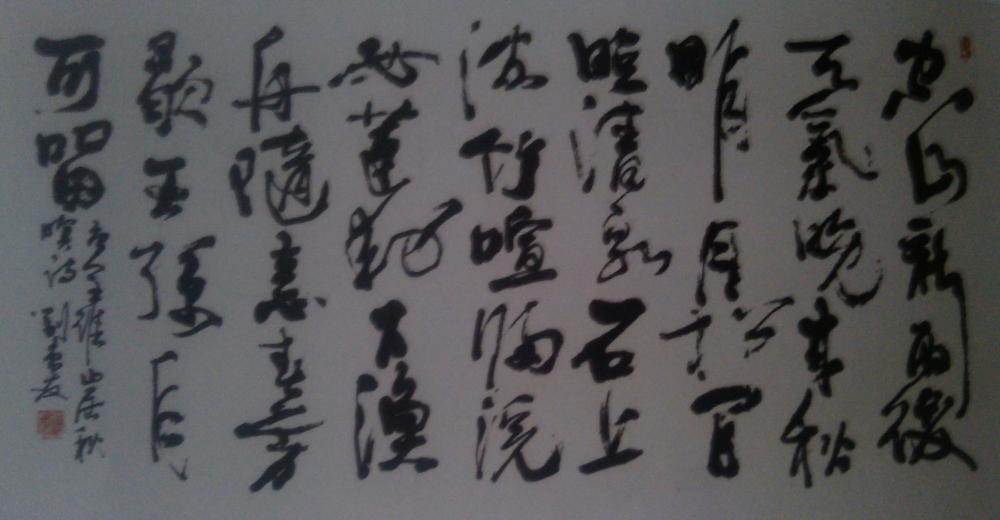 空山新雨後
天氣晚来秋
明月松間
照清泉石上
流竹喧歸浣
女蓮動下漁
舟隨意春芳
歇王孫自
可留
唐王維山居秋
暝詩 劉